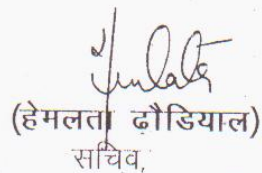 (हेमलता ढौडियाल)
सचिव,